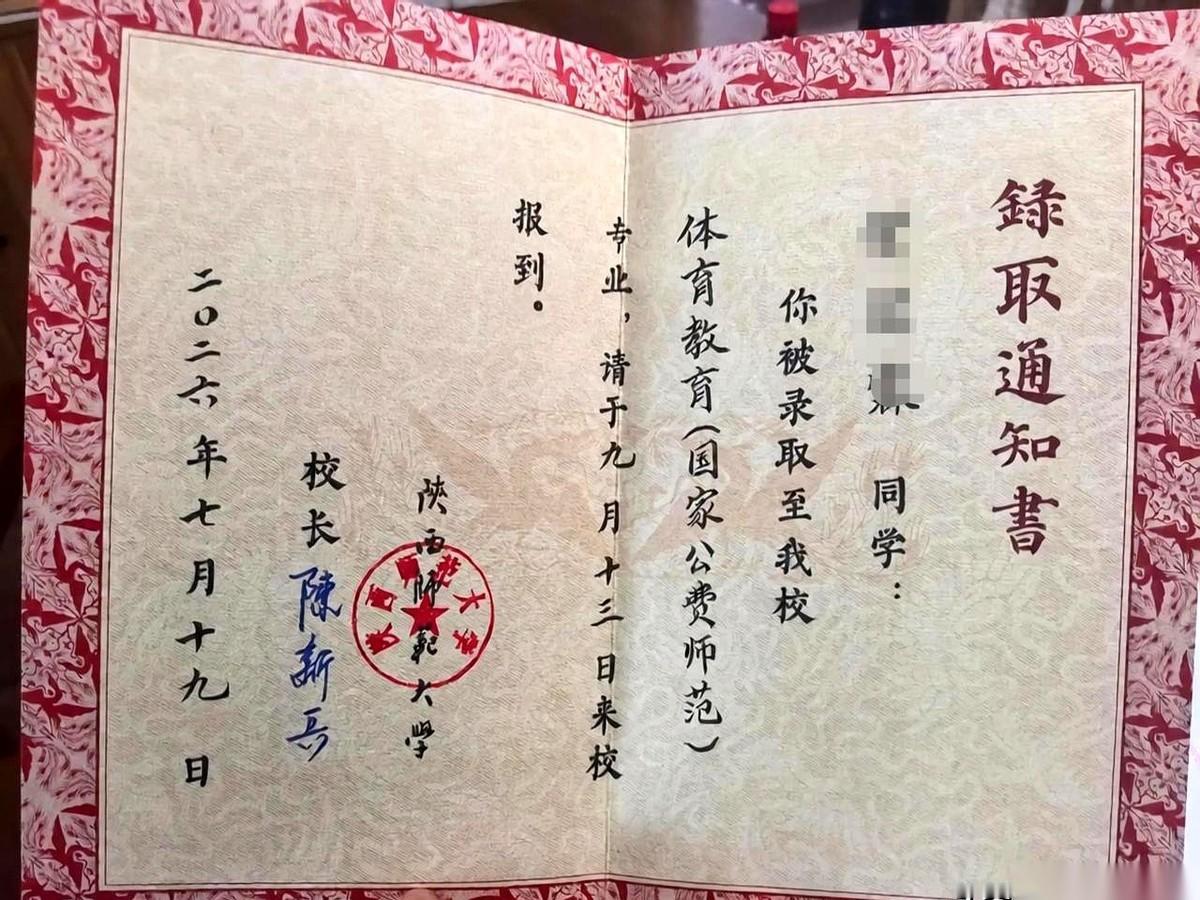 録取通知書
同学：
你被录取至我校
体育教育（国家公费师范）
专业，请于九月十三日来校
报到。
陝西師範大學
陝西師範大學
校长 陳新兵
二〇二六年七月十九日